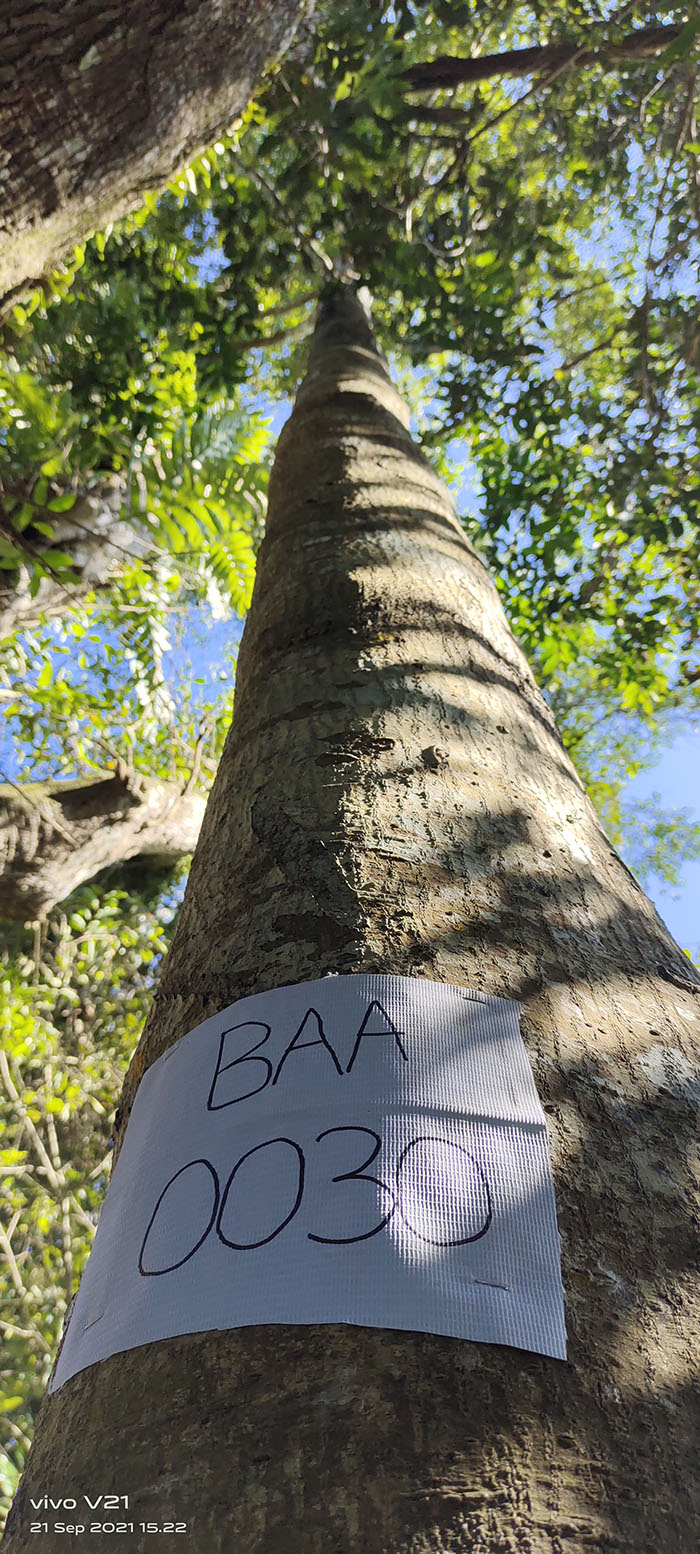 BAA
0030
vivo V21
21 Sep 2021 15.22